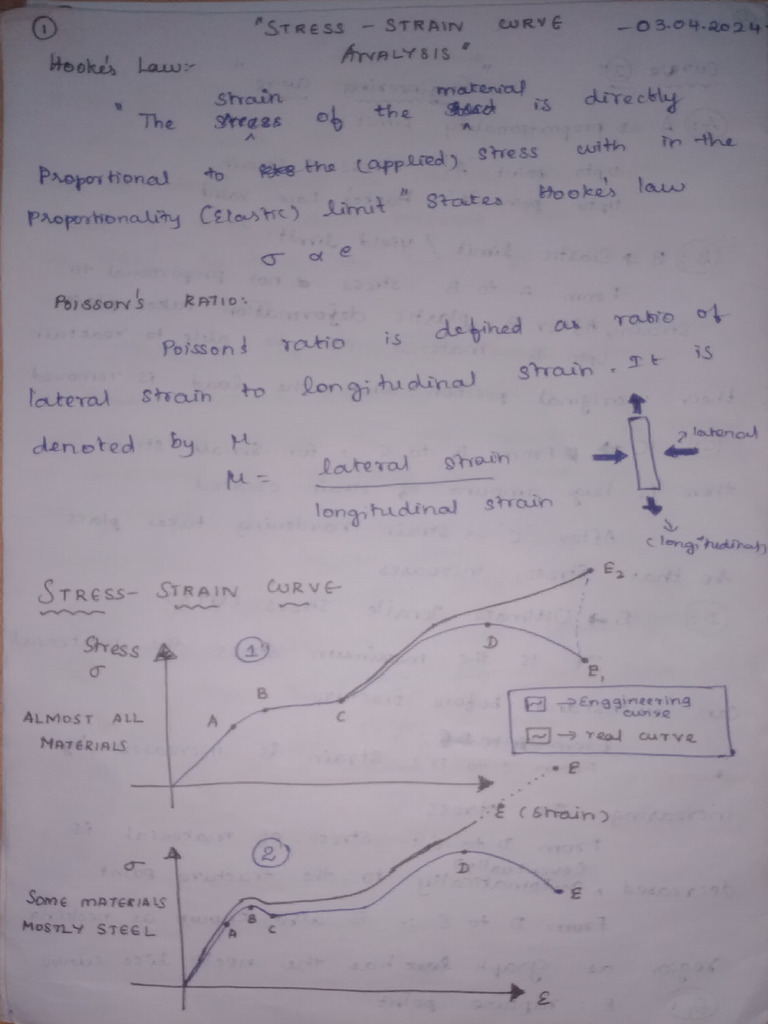 ① "STRESS - STRAIN CURVE - 03.04.2024
ANALYSIS"
Hooke's Law:-
strain material
"The stress of the is directly
Proportional to the (applied). stress with in the
Proportionality (Elastic) limit" States Hooke's law
σ α e
POISSON'S RATIO:
Poisson's ratio is defined as ratio of
lateral strain to longitudinal strain. It is
denoted by μ
lateral
μ = lateral strain
longitudinal strain
(longitudinal)
STRESS- STRAIN CURVE
E₂
Stress
σ
①
D
B
A
C
E₁
ALMOST ALL
MATERIALS
→ Enggineering
curve
→ real curve
E
ε (strain)
σ
②
D
SOME MATERIALS
MOSTLY STEEL
B
A
C
E
ε